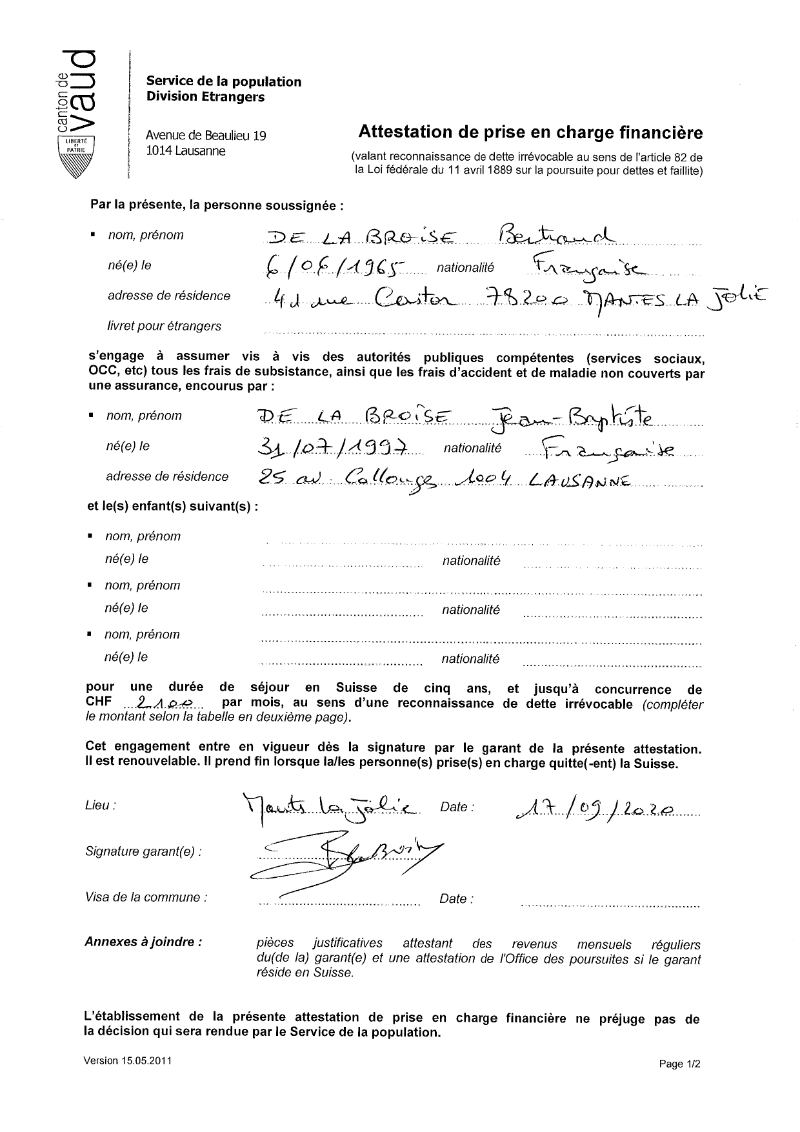 canton de
vaud
LIBERTÉ
ET
PATRIE
Service de la population
Division Etrangers
Avenue de Beaulieu 19
1014 Lausanne
Attestation de prise en charge financière
(valant reconnaissance de dette irrévocable au sens de l'article 82 de
la Loi fédérale du 11 avril 1889 sur la poursuite pour dettes et faillite)
Par la présente, la personne soussignée :
▪ nom, prénom DE LA BROISE Bertrand
né(e) le 6/06/1965 nationalité Française
adresse de résidence 4d rue Castor 78200 MANTES LA JOLIE
livret pour étrangers
s'engage à assumer vis à vis des autorités publiques compétentes (services sociaux,
OCC, etc) tous les frais de subsistance, ainsi que les frais d'accident et de maladie non couverts par
une assurance, encourus par :
▪ nom, prénom DE LA BROISE Jean-Baptiste
né(e) le 31/07/1997 nationalité Française
adresse de résidence 25 av. Collonges 1004 LAUSANNE
et le(s) enfant(s) suivant(s) :
▪ nom, prénom
né(e) le nationalité
▪ nom, prénom
né(e) le nationalité
▪ nom, prénom
né(e) le nationalité
pour une durée de séjour en Suisse de cinq ans, et jusqu'à concurrence de
CHF 2100 par mois, au sens d'une reconnaissance de dette irrévocable (compléter
le montant selon la tabelle en deuxième page).
Cet engagement entre en vigueur dès la signature par le garant de la présente attestation.
Il est renouvelable. Il prend fin lorsque la/les personne(s) prise(s) en charge quitte(-ent) la Suisse.
Lieu : Mantes la Jolie Date : 17/09/2020
Signature garant(e) :
Visa de la commune : Date :
Annexes à joindre : pièces justificatives attestant des revenus mensuels réguliers
du(de la) garant(e) et une attestation de l'Office des poursuites si le garant
réside en Suisse.
L'établissement de la présente attestation de prise en charge financière ne préjuge pas de
la décision qui sera rendue par le Service de la population.
Version 15.05.2011 Page 1/2